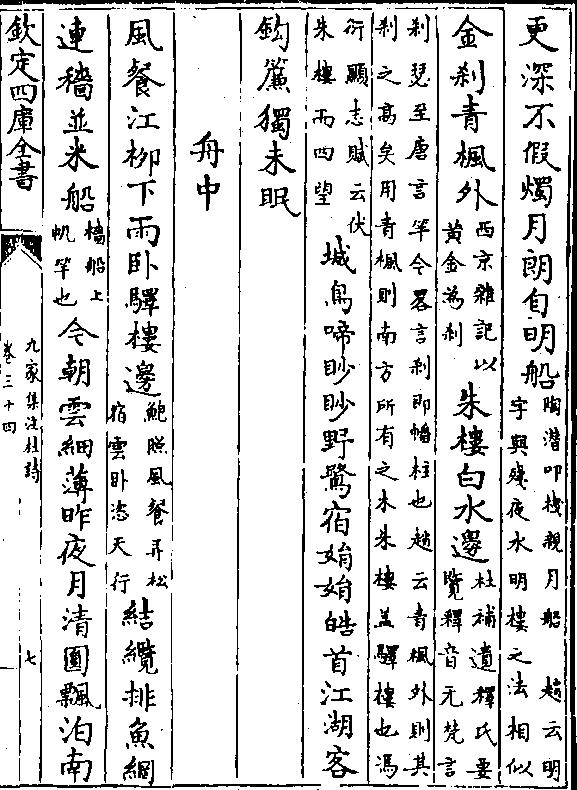 更深不假燭月朗自明船陶潛叩栧親月船 趙云明
字與殘夜水明樓之法相似
金刹青楓外西京雜記以
黃金為刹朱樓白水邊杜補遺釋氏要
覽釋音无梵言
刹瑟至唐言竿今畧言刹即幡柱也趙云青楓外則其
刹之高矣用青楓則南方所有之木朱樓盖驛樓也馮
衍顯志賦云伏
朱樓而四望城烏啼眇眇野鷺宿娟娟皓首江湖客
鈎簾獨未眠
舟中
風餐江栁下雨卧驛樓邊鮑照風餐弄松
宿雲卧恣天行結纜排魚網
連檣並米船檣船上
帆竿也今朝雲細薄昨夜月清圓飄泊南
欽定四庫全書
九家集注杜詩
卷三十四
七